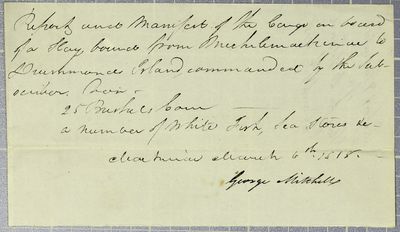 Report and Manifest of the Cargo on board
of a Slay bound from Michilimackinac to
Drummonds Island commanded by the Sub-
scriber. Viz.
25 Bushels Corn
a number of White Fish, Sea Stores &c
March 6th 1818.
George Mitchell